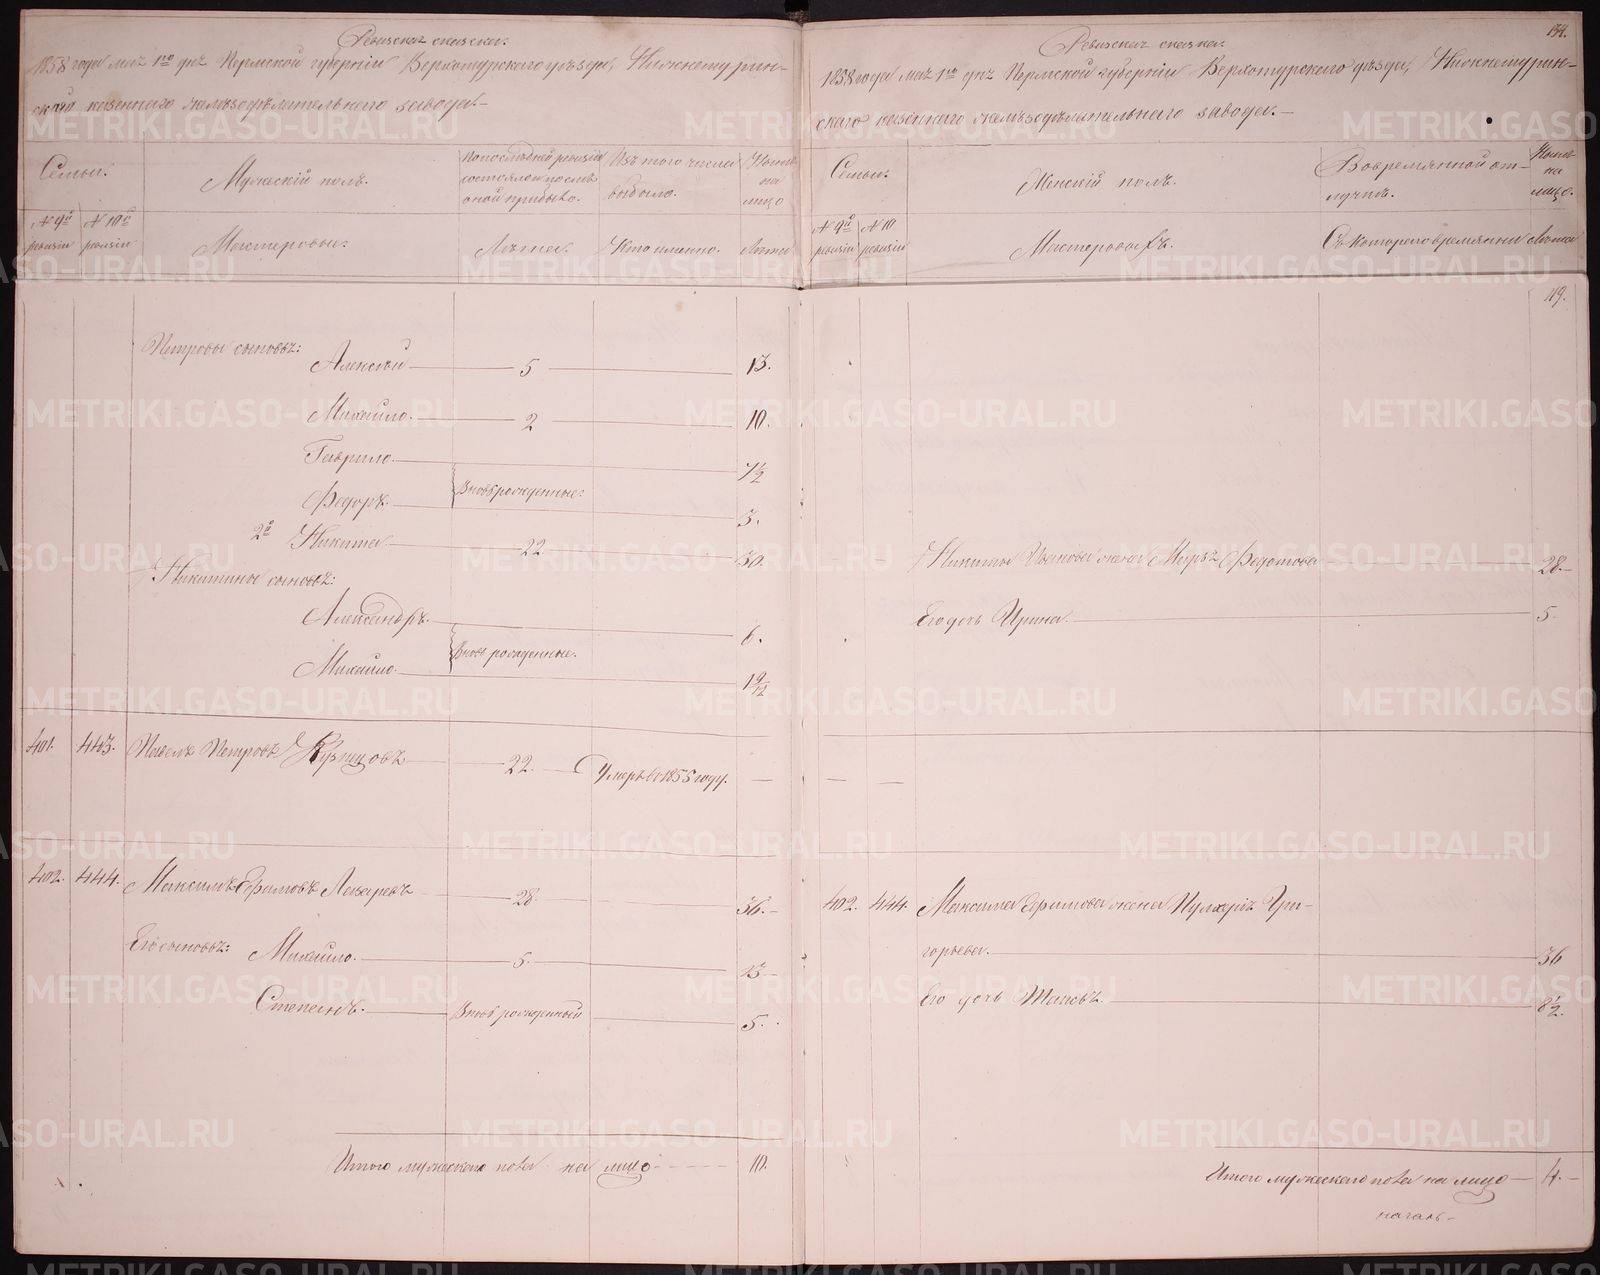 Ревизская сказка.
1858 года мая 1го дня Пермской губернии Верхотурского уѣзда, Нижнетурин-
скаго казеннаго желѣзодѣлательнаго завода.—
Семьи.
Мужескій полъ.
По послѣдней ревизіи состояло и послѣ оной прибыло.
Изъ того числа выбыло.
Нынѣ на лицо
№ 9й ревизіи
№ 10й ревизіи
Мастеровые.
Лѣта.
Кто именно.
Лѣта
Петровы сыновья:
Алексѣй 5 13.
Михайло. 2 10.
Гаврило. 7½
Федоръ. 3.
Вновьрожденные.
2й Никита 22 30.
Никитины сыновья:
Александръ. 6.
Михайло. 1 9/12
Вновь рожденные.
401. 443. Павелъ Петровъ Кузнецовъ 22. Умеръ въ 1855 году. —
402. 444. Максимъ Ефимовъ Лазаревъ 28 36.—
Его сыновья: Михайло. 5. 13—
Степанъ. Вновь рожденный 5.
Итого мужескаго пола на лицо 10.
134.
Ревизская сказка.
1858 года мая 1го дня Пермской губерніи Верхотурскаго уѣзда, Нижнетурин-
скаго казеннаго желѣзодѣлательнаго завода.—
Семьи.
Женскій полъ.
Во временной от-
лучкѣ.
Нынѣ на лицо.
№ 9й ревизіи
№ 10 ревизіи
Мастеровыхъ.
Съ котораго времяни
Лѣта
119.
Никиты Иванова жена Марья Федотова 28.—
Его дочь Ирина. 5.
— —
402. 444. Максима Ефимова жена Пулхерія Гри-
горьева. 36
Его дочь 8½
Итого мужескаго пола на лицо — 4.—
METRIKI.GASO-URAL.RU